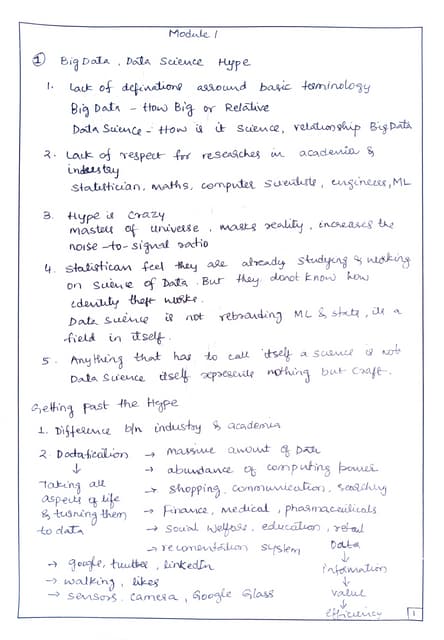 Module 1
① Big Data, Data Science Hype
1. Lack of definations arround basic terminology
Big Data - How Big or Relative
Data Science - How is it science, relationship Big Data
2. Lack of respect for researches in academia &
industry
Statistician, maths, computer Scientists, engineers, ML
3. Hype is Crazy
masters of universe, masks reality, increases the
noise-to-signal ratio
4. Statistican feel they are already studying & working
on science of Data. But they donot know how
identity theft works.
Data Science is not rebranding ML & stats, its a
field in itself.
5. Anything that has to call itself a science is not
Data Science itself represents nothing but craft.
Getting Past the Hype
1. Difference b/n industry & academia
2. Datafication → massive amount of Data
↓ → abundance of computing power
Taking all → shopping, communication, searching
aspects of life → Finance, Medical, pharmaceuticals
& turning them → social welfare, education, retail
to data → recomentation system Data
↓
→ google, twitter, linkedIn information
→ walking, likes ↓
→ sensors, camera, Google Glass value
↓
efficiency
1